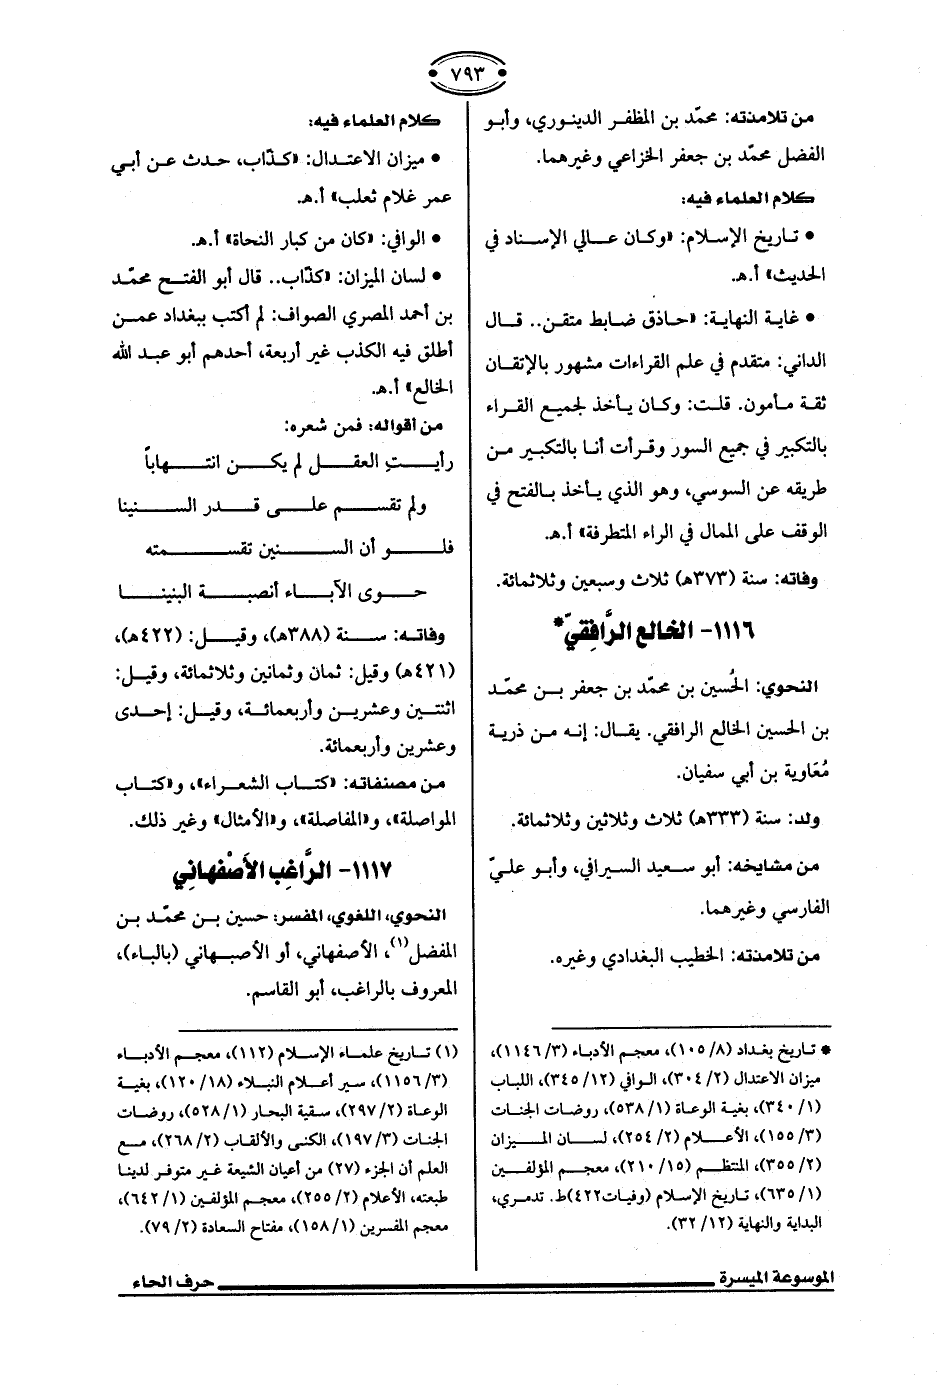 ٧٩٣
من تلامذته: محمّد بن المظفر الدينوري، وأبو
الفضل محمّد بن جعفر الخزاعي وغيرهما.
كلام العلماء فيه:
• تاريخ الإسلام: «وكان عالي الإسناد في
الحديث» أ.هـ.
• غاية النهاية: «حاذق ضابط متقن.. قال
الداني: متقدم في علم القراءات مشهور بالإتقان
ثقة مأمون. قلت: وكان يأخذ لجميع القراء
بالتكبير في جميع السور وقرأت أنا بالتكبير من
طريقه عن السوسي، وهو الذي يأخذ بالفتح في
الوقف على الممال في الراء المتطرفة» أ.هـ.
وفاته: سنة (٣٧٣هـ) ثلاث وسبعين وثلاثمائة.
١١١٦- الخالع الرَّافِقيّ*
النحوي: الحُسين بن محمّد بن جعفر بن محمّد
بن الحسين الخالع الرافقي. يقال: إنه من ذرية
مُعَاوية بن أبي سفيان.
ولد: سنة (٣٣٣هـ) ثلاث وثلاثين وثلاثمائة.
من مشايخه: أبو سعيد السيرافي، وأبو عليّ
الفارسي وغيرهما.
من تلامذته: الخطيب البغدادي وغيره.
* تاريخ بغداد (٨/ ١٠٥)، معجم الأدباء (٣/ ١١٤٦)،
ميزان الاعتدال (٢/ ٣٠٤)، الوافي (١٢/ ٣٤٥)، اللباب
(١/ ٣٤٠)، بغية الوعاة (١/ ٥٣٨)، روضات الجنات
(٣/ ١٥٥)، الأعلام (٢/ ٢٥٤)، لسان الميزان
(٢/ ٣٥٥)، المنتظم (١٥/ ٢١٠)، معجم المؤلفين
(١/ ٦٣٥)، تاريخ الإسلام (وفيات٤٢٢)ط. تدمري،
البداية والنهاية (١٢/ ٣٢).
كلام العلماء فيه:
• ميزان الاعتدال: «كذّاب، حدث عن أبي
عمر غلام ثعلب» أ.هـ.
• الوافي: «كان من كبار النحاة» أ.هـ.
• لسان الميزان: «كذّاب.. قال أبو الفتح محمّد
بن أحمد المصري الصواف: لم أكتب ببغداد عمن
أطلق فيه الكذب غير أربعة، أحدهم أبو عبد الله
الخالع» أ.هـ.
من أقواله: فمن شعره:
رأيت العقل لم يكن انتهاباً
ولم تقسم على قدر السنينا
فلو أن السنين تقسمته
حوى الآباء أنصبة البنينا
وفاته: سنة (٣٨٨هـ)، وقيل: (٤٢٢هـ)،
(٤٢١هـ) وقيل: ثمان وثمانين وثلاثمائة، وقيل:
اثنتين وعشرين وأربعمائة، وقيل: إحدى
وعشرين وأربعمائة.
من مصنفاته: «كتاب الشعراء»، و«كتاب
المواصلة»، و«المفاصلة»، و«الأمثال» وغير ذلك.
١١١٧- الرَّاغِب الأَصْفهانِي
النحوي، اللغوي، المفسر: حسين بن محمّد بن
المفضل(١)، الأصفهاني، أو الأصبهاني (بالباء)،
المعروف بالراغب، أبو القاسم.
(١) تاريخ علماء الإسلام (١١٢)، معجم الأدباء
(٣/ ١١٥٦)، سير أعلام النبلاء (١٨/ ١٢٠)، بغية
الوعاة (٢/ ٢٩٧)، سقية البحار (١/ ٥٢٨)، روضات
الجنات (٣/ ١٩٧)، الكنى والألقاب (٢/ ٢٦٨)، مع
العلم أن الجزء (٢٧) من أعيان الشيعة غير متوفر لدينا
طبعته، الأعلام (٢/ ٢٥٥)، معجم المؤلفين (١/ ٦٤٢)،
معجم المفسرين (١/ ١٥٨)، مفتاح السعادة (٢/ ٧٩).
الموسوعة الميسرة
حرف الحاء